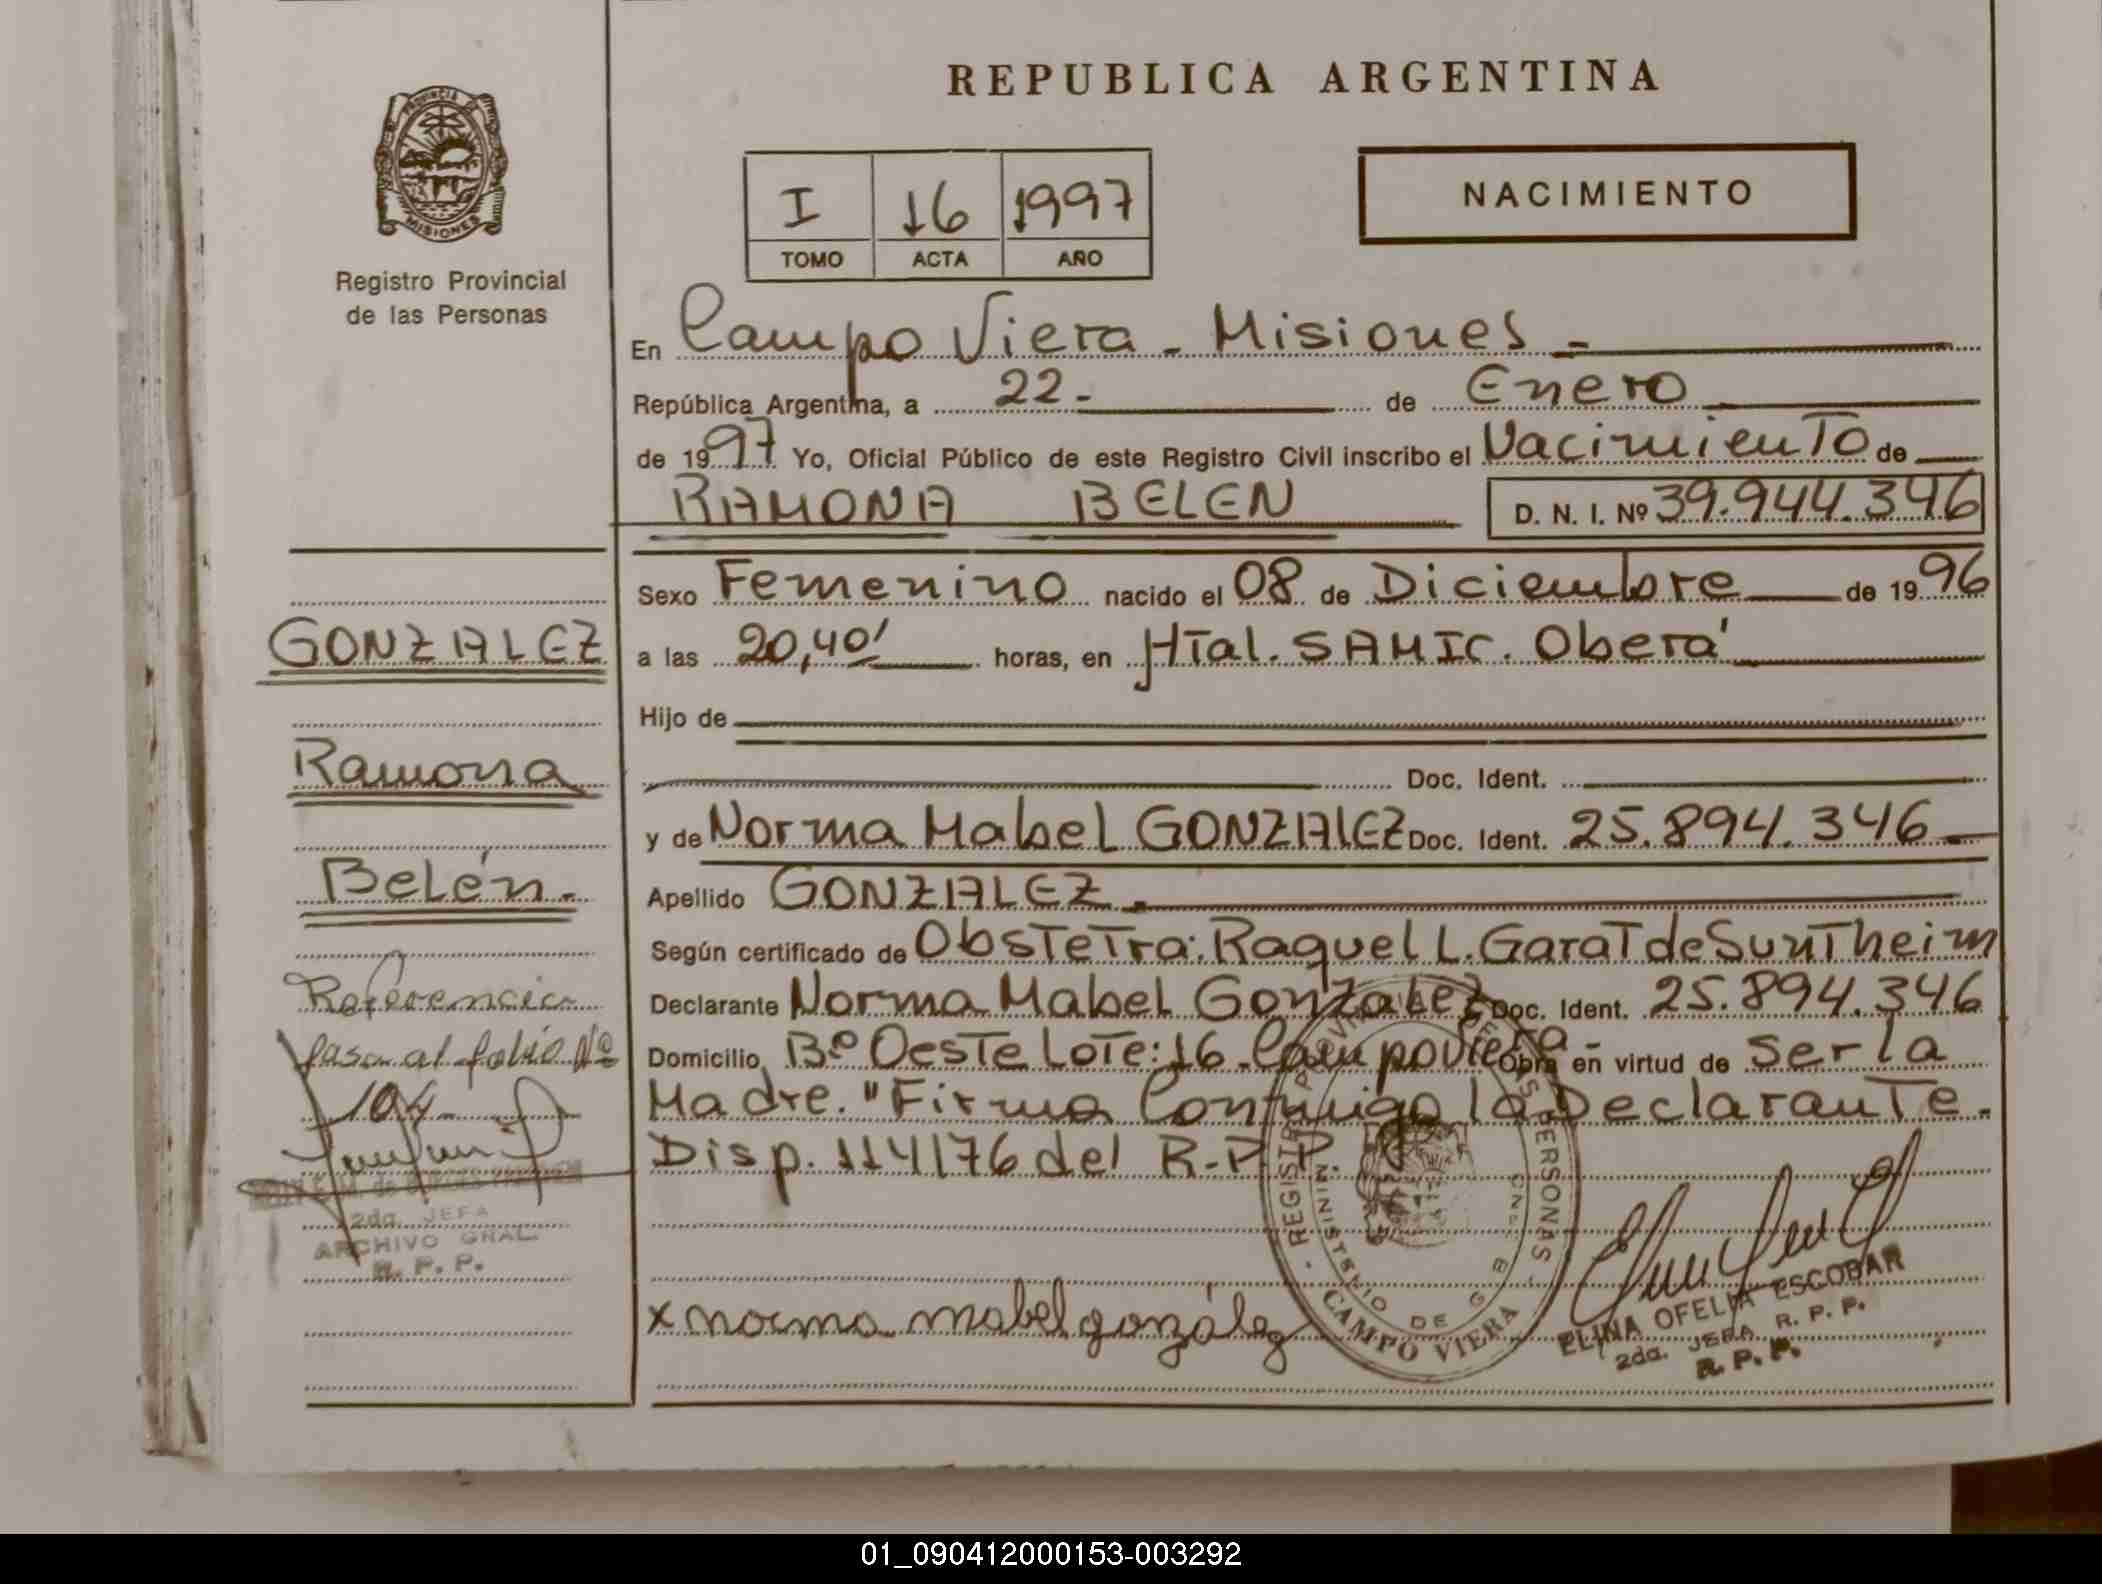 REPUBLICA ARGENTINA
PROVINCIA DE
MISIONES
Registro Provincial
de las Personas
I 16 1997
TOMO ACTA AÑO
NACIMIENTO
En Campo Viera - Misiones -
República Argentina, a 22- de Enero
de 1997 Yo, Oficial Público de este Registro Civil inscribo el Nacimiento de
RAMONA BELEN D. N. I. Nº 39.944.346
Sexo Femenino nacido el 08 de Diciembre de 1996
a las 20,40' horas, en Htal. SAMIC. Oberá
Hijo de
Doc. Ident.
y de Norma Mabel GONZALEZ Doc. Ident. 25.894.346
Apellido GONZALEZ.
Según certificado de Obstetra: Raquel L. Garat de Suntheim
Declarante Norma Mabel Gonzalez Doc. Ident. 25.894.346
Domicilio Bº Oeste Lote: 16 - Campo Viera - Obra en virtud de ser la
Madre. "Firma Conmigo la Declarante.
Disp. 114/76 del R.P.P.
x norma mabel gonzález
REGISTRO PROVINCIAL DE LAS PERSONAS
MINISTERIO DE G
CAMPO VIERA
ELINA OFELIA ESCOBAR
2da. JEFA R. P. P.
R. P. P.
GONZALEZ
Ramona
Belén.
Referencia
pasa al folio Nº
104
2da. JEFA
ARCHIVO GRAL.
R. P. P.
01_090412000153-003292